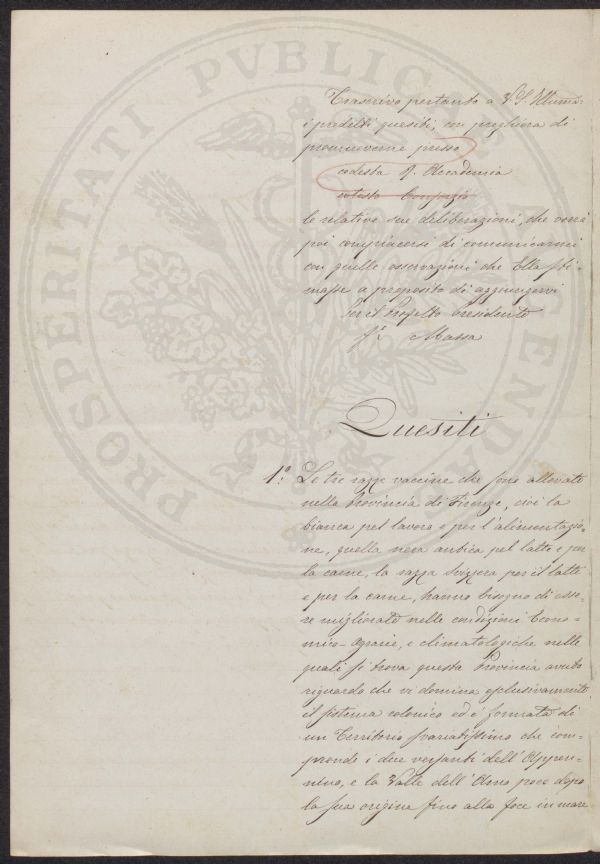 Trascrivo pertanto a V.S. Illumã:
i predetti quesiti, con preghiera di
promuoverne presso
codesta R. Accademia
cotesto Comizio
le relative sue deliberazioni, che vorrà
poi compiacersi di comunicarmi
con quelle osservazioni che Ella sti-
masse a proposito di aggiungervi
Per il Prefetto Presidente
fº Massa
Quesiti
1º: Le tre razze vaccine che sono allevate
nella Provincia di Firenze, cioè la
bianca pel lavoro e per l'alimentazio-
ne, quella nera antica pel latte e per
la carne, la razza Svizzera per il latte
e per la carne, hanno bisogno di esse-
re migliorate nelle condizioni Econo-
mico-Agrarie, e climatologiche nelle
quali si trova questa Provincia avuto
riguardo che vi domina esclusivamente
il sistema colonico ed è formata di
un Territorio svariatissimo che com-
prende i due versanti dell'Appen-
nino, e la Valle dell'Arno poco dopo
la sua origine fino alla foce in mare
PROSPERITATI PVBLICAE AVGENDAE